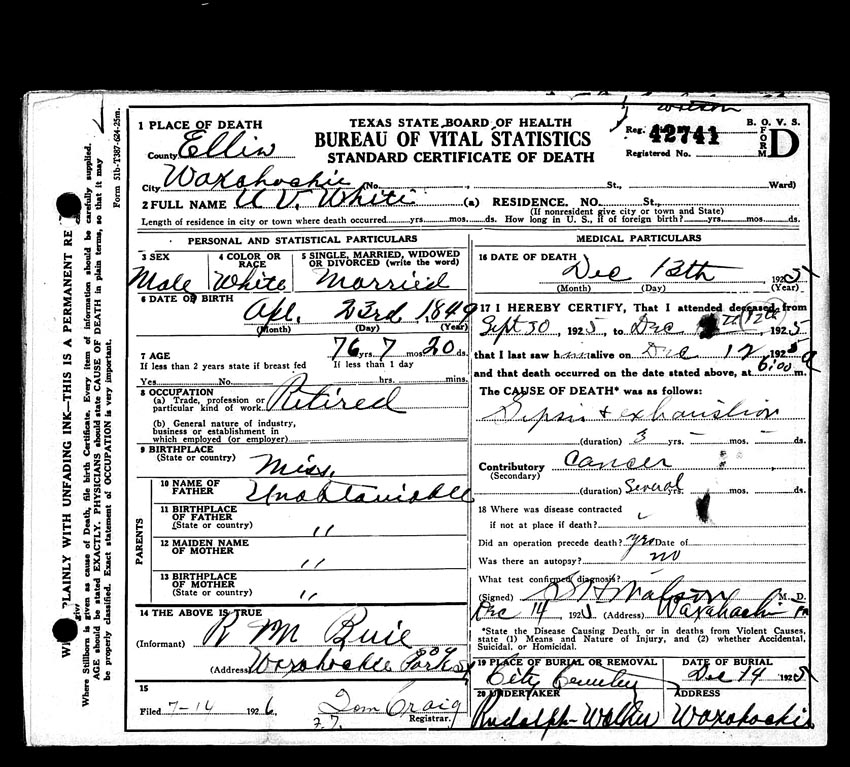 Watson
TEXAS STATE BOARD OF HEALTH
BUREAU OF VITAL STATISTICS
STANDARD CERTIFICATE OF DEATH
B. O. V. S.
FORM D
Reg. 42741
Registered No.
1 PLACE OF DEATH
County Ellis
City Waxahachie (No. , St., Ward)
2 FULL NAME U V. White (a) RESIDENCE. NO. St.,
(If nonresident give city or town and State)
Length of residence in city or town where death occurred yrs. mos. ds. How long in U. S., if of foreign birth? yrs. mos. ds.
PERSONAL AND STATISTICAL PARTICULARS
3 SEX Male
4 COLOR OR RACE White
5 SINGLE, MARRIED, WIDOWED OR DIVORCED (write the word) Married
6 DATE OF BIRTH Apl. 23rd 1849
(Month) (Day) (Year)
7 AGE 76 yrs. 7 mos. 20 ds.
If less than 2 years state if breast fed If less than 1 day
Yes No. hrs. mins.
8 OCCUPATION
(a) Trade, profession or particular kind of work Retired
(b) General nature of industry, business or establishment in which employed (or employer)
9 BIRTHPLACE
(State or country) Miss.
PARENTS
10 NAME OF FATHER Unobtainable
11 BIRTHPLACE OF FATHER (State or country) "
12 MAIDEN NAME OF MOTHER "
13 BIRTHPLACE OF MOTHER (State or country) "
14 THE ABOVE IS TRUE
(Informant) R M Buie
(Address) Waxahachie
15
Filed 7-16 1926, Tom Craig
Registrar.
MEDICAL PARTICULARS
16 DATE OF DEATH
Dec 13th 1925
(Month) (Day) (Year)
17 I HEREBY CERTIFY, That I attended deceased from
Sept 30, 1925, to Dec 12th, 1925
that I last saw him alive on Dec 12 1925
and that death occurred on the date stated above, at 6:00 a m.
The CAUSE OF DEATH* was as follows:
Sepsis + exhaustion
(duration) 3 yrs. - mos. - ds.
Contributory Cancer
(Secondary)
(duration) Several yrs. mos. ds.
18 Where was disease contracted
if not at place if death?
Did an operation precede death? yes Date of
Was there an autopsy? no
What test confirmed diagnosis?
(Signed) Watson M. D.
Dec 14, 1925 (Address) Waxahachie
*State the Disease Causing Death, or in deaths from Violent Causes, state (1) Means and Nature of Injury, and (2) whether Accidental, Suicidal, or Homicidal.
19 PLACE OF BURIAL OR REMOVAL City Cemetery
DATE OF BURIAL Dec 14 1925
20 UNDERTAKER Rudolph-Walker
ADDRESS Waxahachie
PLAINLY WITH UNFADING INK—THIS IS A PERMANENT RE
Where Stillborn is given as cause of Death, file birth Certificate. Every item of information should be carefully supplied.
AGE should be stated EXACTLY. PHYSICIANS should state CAUSE OF DEATH in plain terms, so that it may
be properly classified. Exact statement of OCCUPATION is very important.
Form 51b-T387-624-25m.